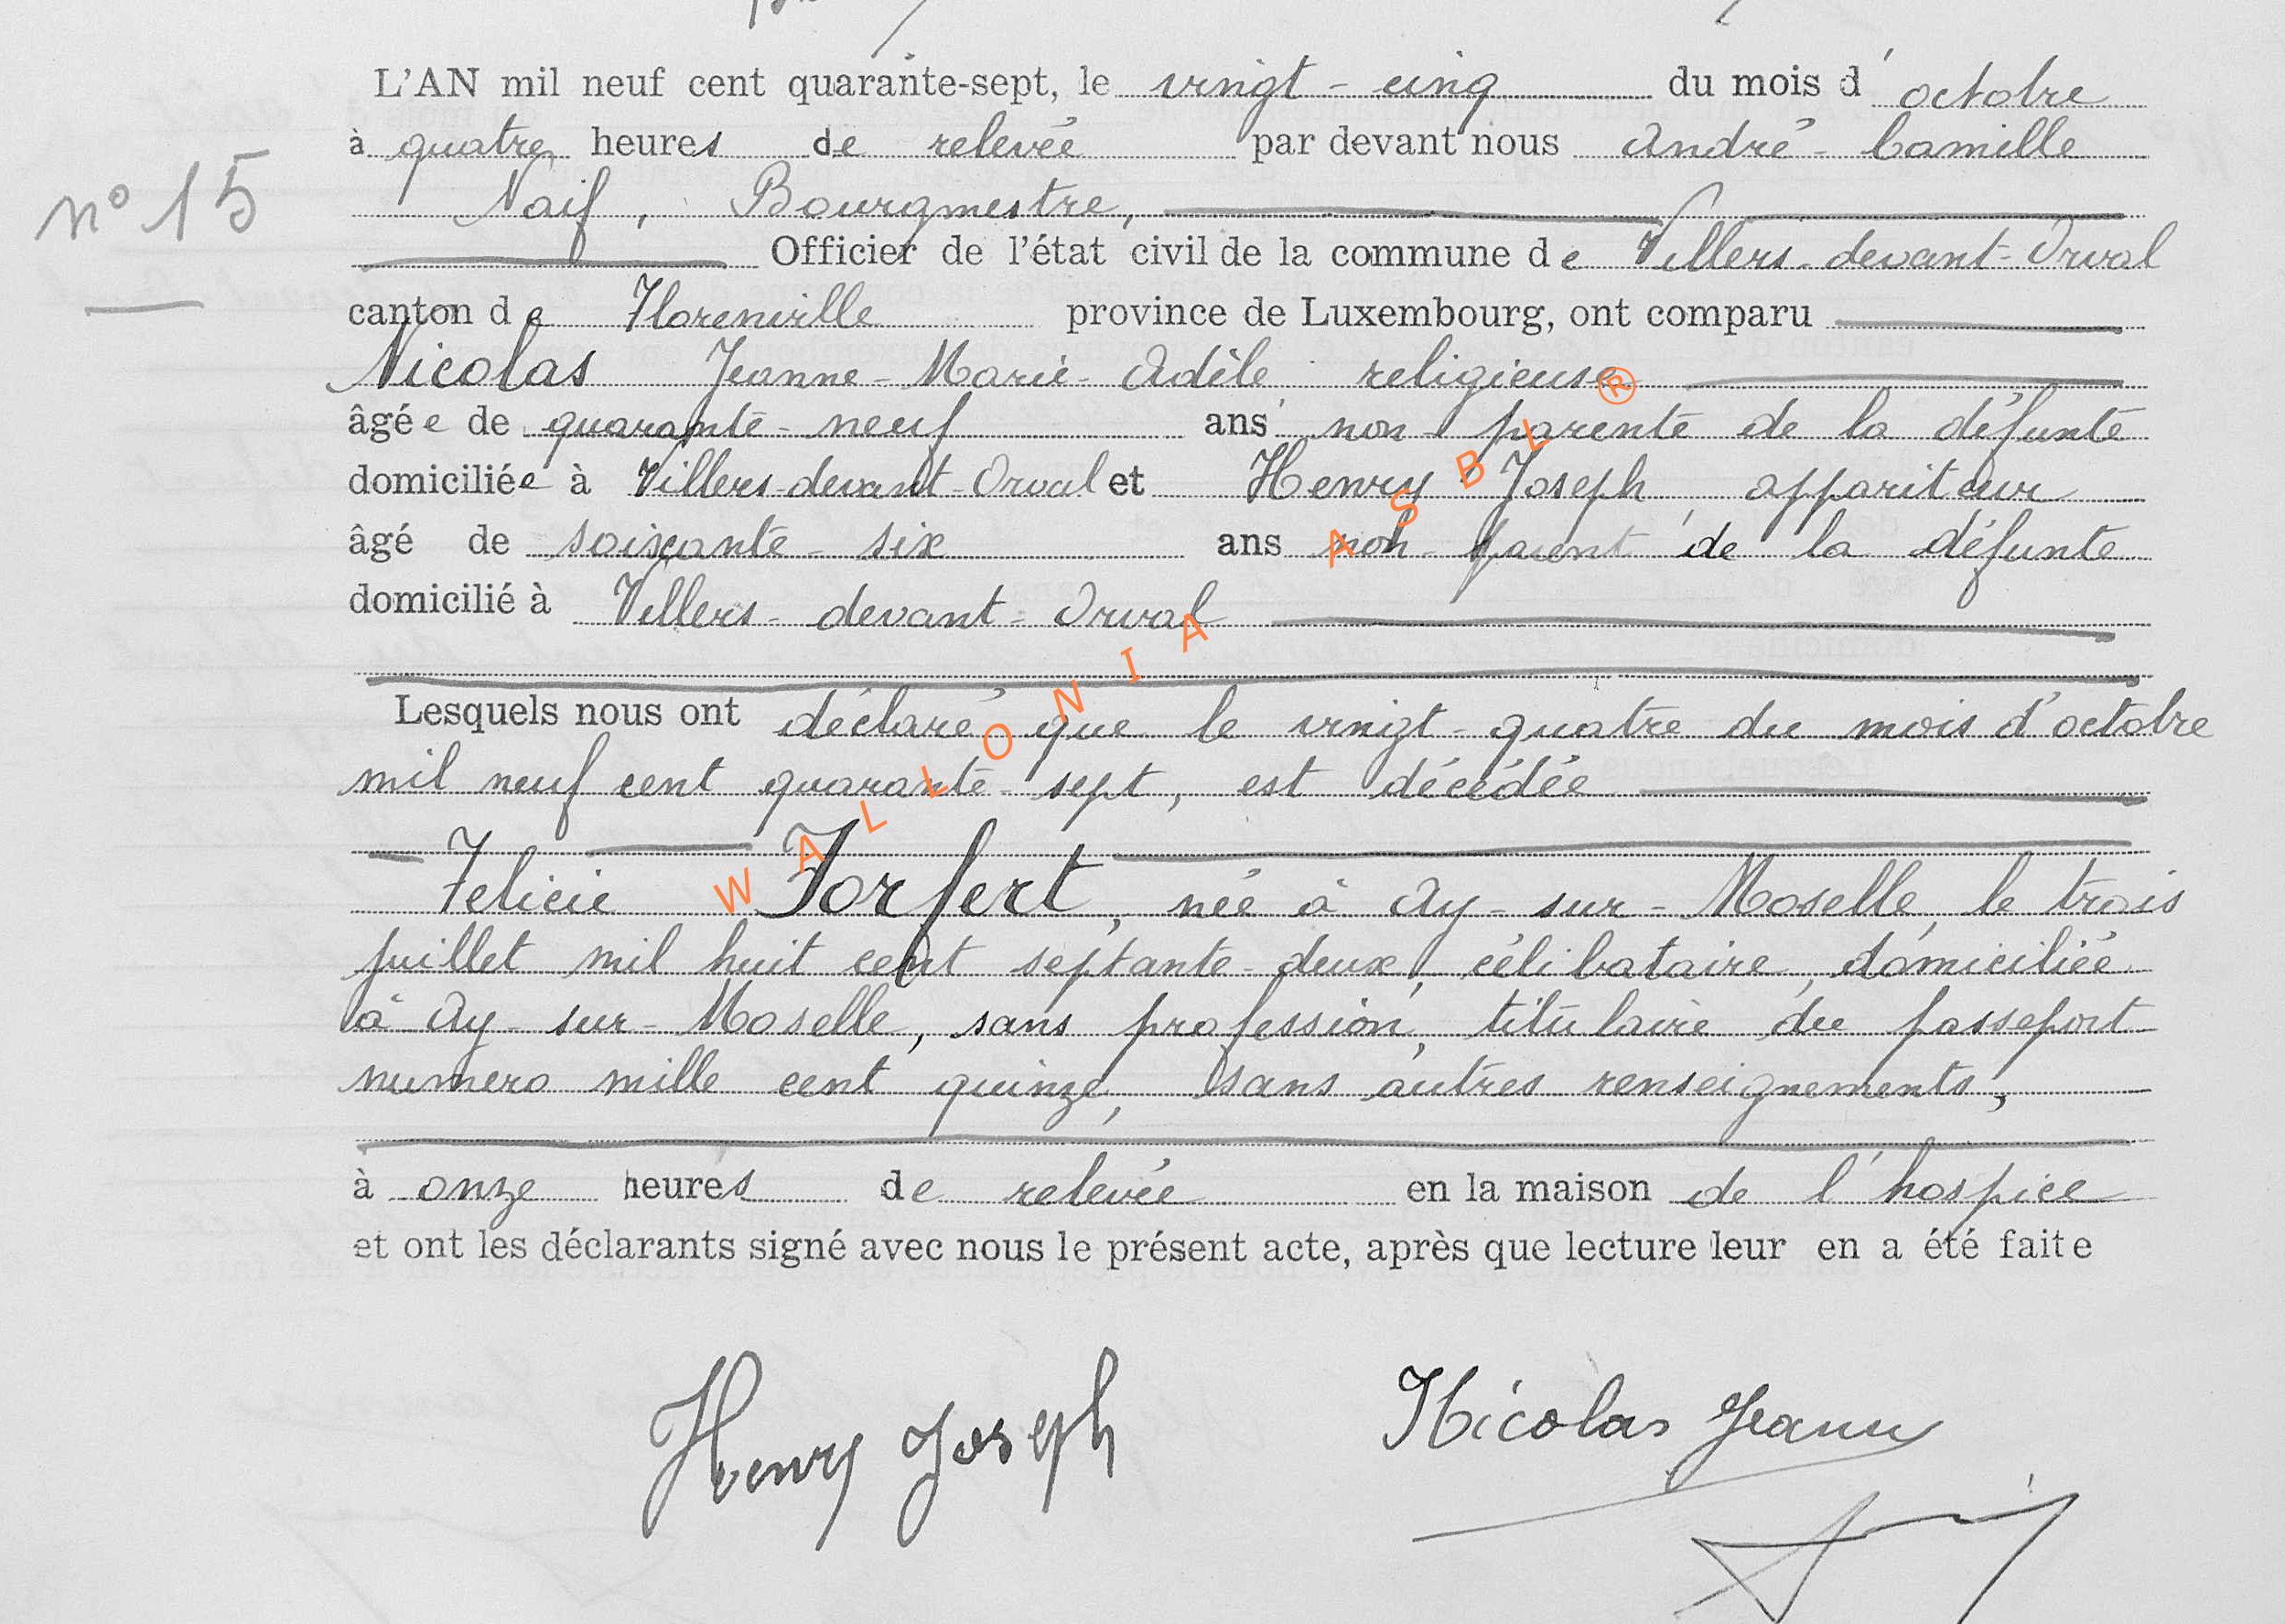 L'AN mil neuf cent quarante-sept, le vingt-cinq du mois d'octobre
à quatre heures de relevée par devant nous André-Camille
n° 15
Naif, Bourgmestre,
Officier de l'état civil de la commune de Villers-devant-Orval
canton de Florenville province de Luxembourg, ont comparu
Nicolas Jeanne-Marie-Adèle religieuse
âgée de quarante-neuf ans non parente de la défunte
domiciliée à Villers-devant-Orval et Henry Joseph, appariteur
âgé de soixante-six ans non-parent de la défunte
domicilié à Villers-devant-Orval
Lesquels nous ont déclaré que le vingt-quatre du mois d'octobre
mil neuf cent quarante-sept, est décédée
Felicie Forfert, née à Ay-sur-Moselle, le trois
juillet mil huit cent septante-deux, célibataire, domiciliée
à Ay-sur-Moselle, sans profession, titulaire du passeport
numero mille cent quinze, sans autres renseignements,
à onze heures de relevée en la maison de l'hospice
et ont les déclarants signé avec nous le présent acte, après que lecture leur en a été faite
Henry Joseph
Nicolas Jeanne
WALLONIA ASBL®